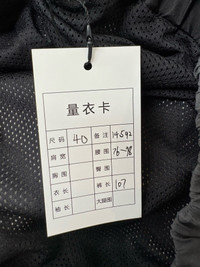 量衣卡
尺码 40 备注 14592
肩宽 腰围 76~98
胸围 臀围
衣长 裤长 107
袖长 大腿围